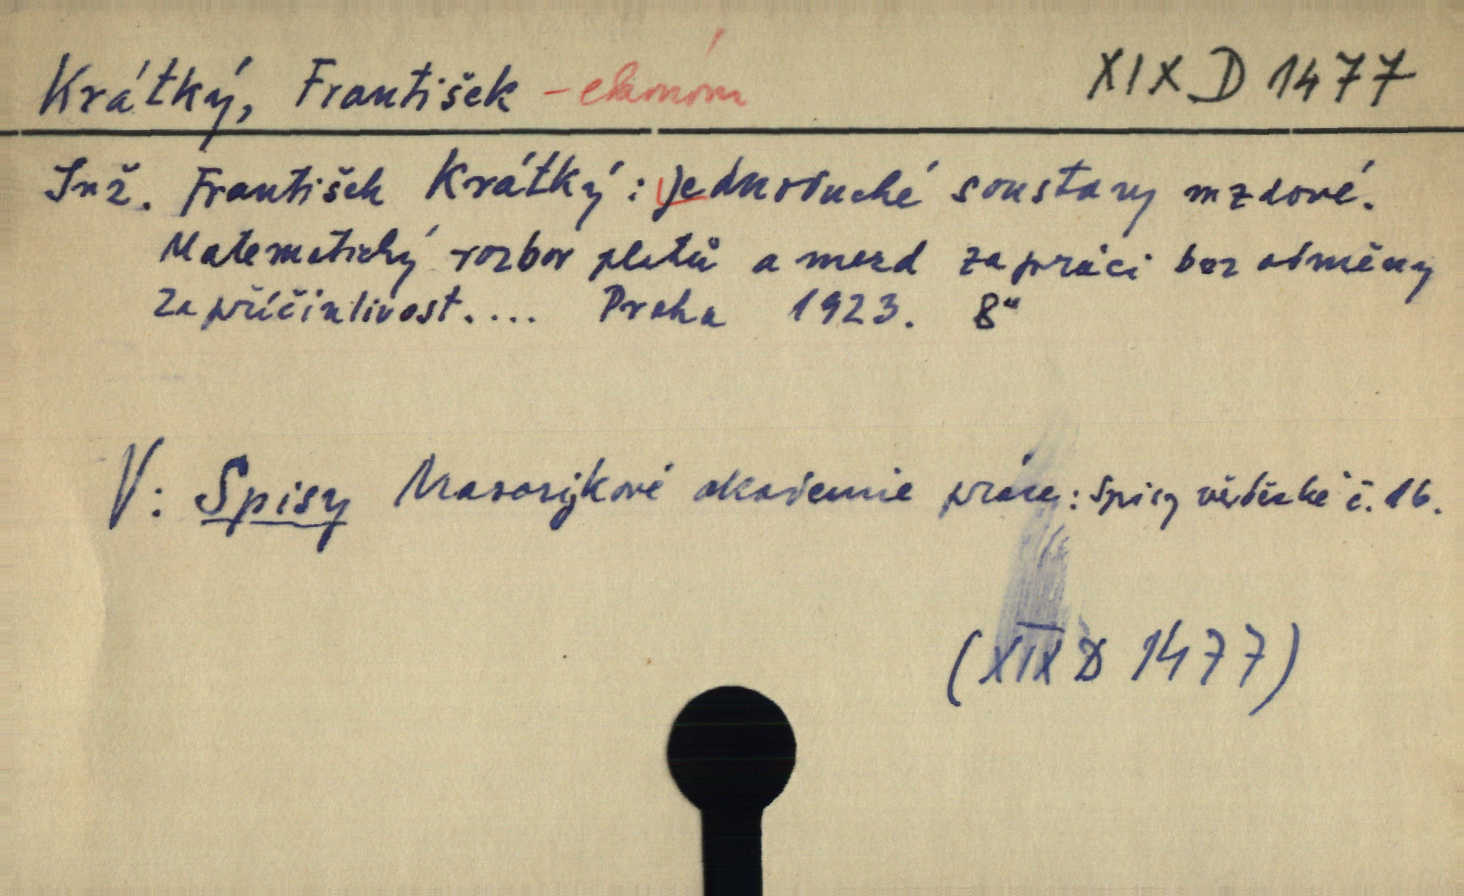 Krátký, František - ekonom XIX D 1477
Inž. František Krátký: Jednoduché soustavy mzdové.
Matematický rozbor platů a mezd za práci bez odměny
za přičinlivost.... Praha 1923. 8°
V: Spisy Masarykové akademie práce: Spisy vědecké č. 16.
(XIX D 1477)